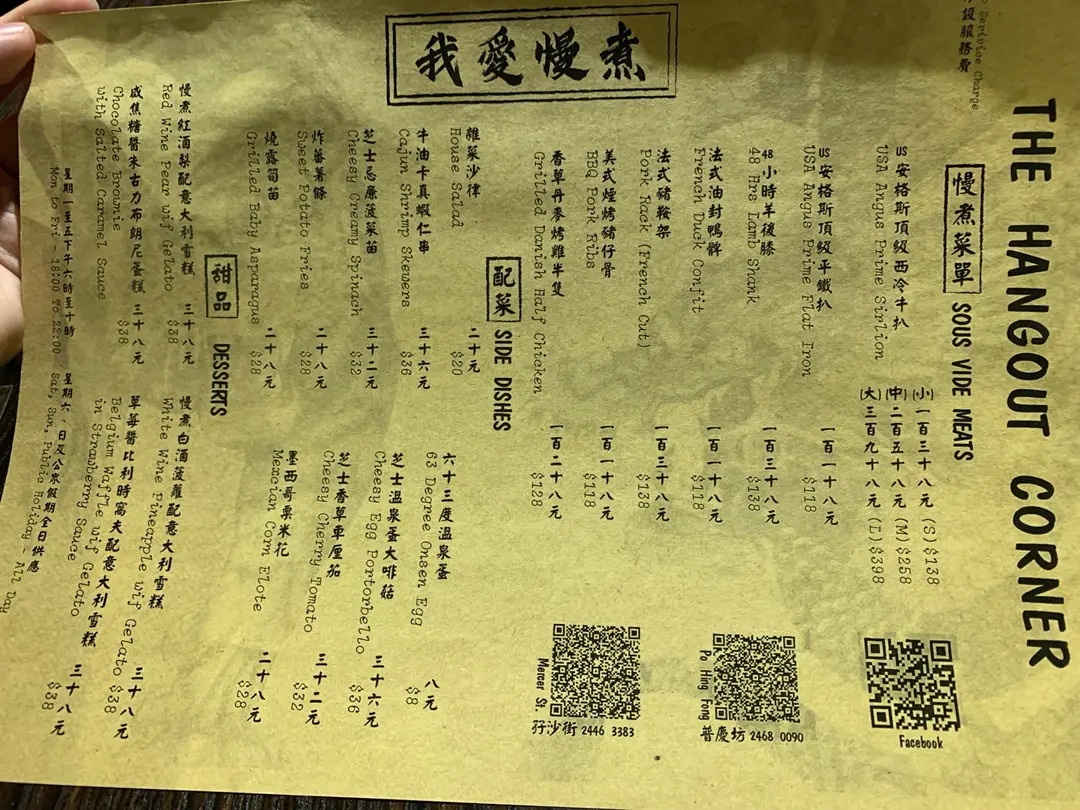 THE HANGOUT CORNER
我愛慢煮
設服務費
Service Charge
慢煮菜單 SOUS VIDE MEATS
US安格斯頂級西冷牛扒
USA Angus Prime Sirlion
(小) 一百三十八元 (S) $138
(中) 二百五十八元 (M) $258
(大) 三百九十八元 (L) $398
US安格斯頂級平鐵扒 一百一十八元
USA Angus Prime Flat Iron $118
48小時羊後膝 一百三十八元
48 Hrs Lamb Shank $138
法式油封鴨髀 一百一十八元
French Duck Confit $118
法式豬鞍架 一百三十八元
Pork Rack (French Cut) $138
美式煙烤豬仔骨 一百一十八元
BBQ Pork Ribs $118
香草丹麥烤雞半隻 一百二十八元
Grilled Danish Half Chicken $128
配菜 SIDE DISHES
雜菜沙律 二十元
House Salad $20
牛油卡真蝦仁串 三十六元
Cajun Shrimp Skewers $36
芝士忌廉菠菜苗 三十二元
Cheesy Creamy Spinach $32
炸蕃薯條 二十八元
Sweet Potato Fries $28
燒露筍苗 二十八元
Grilled Baby Asparagus $28
六十三度溫泉蛋 八元
63 Degree Onsen Egg $8
芝士溫泉蛋大啡菇 三十六元
Cheesy Egg Portorbello $36
芝士香草車厘茄 三十二元
Cheesy Cherry Tomato $32
墨西哥粟米花 二十八元
Mexcian Corn Elote $28
甜品 DESSERTS
慢煮紅酒梨配意大利雪糕 三十八元
Red Wine Pear wif Gelato $38
咸焦糖醬朱古力布朗尼蛋糕 三十八元
Chocolate Brownie
with Salted Caramel Sauce $38
慢煮白酒菠蘿配意大利雪糕 三十八元
White Wine Pineapple wif Gelato $38
草莓醬比利時窩夫配意大利雪糕 三十八元
Belgium Waffle wif Gelato
in Strawberry Sauce $38
星期一至五下午六時至十時 星期六、日及公眾假期全日供應
Mon to Fri - 18:00 To 22:00 Sat, Sun, Public Holiday - All Day
Facebook
Po Hing Fong
普慶坊 2468 0090
Mercer St.
孖沙街 2446 3383